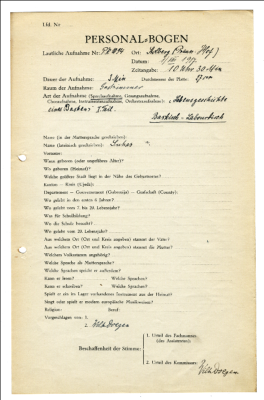 Lfd. Nr
PERSONAL-BOGEN
Lautliche Aufnahme Nr. Ort:
Datum:
Zeitangabe: 10 Uhr 30 Min
Dauer der Aufnahme: 3 Min Durchmesser der Platte: 27 cm
Raum der Aufnahme:
Art der Aufnahme (Sprechaufnahme, Gesangsaufnahme, Lebensgeschichte
Choraufnahme, Instrumentenaufnahme, Orchesteraufnahme):
eines Basken I. Teil.
Baskisch-Labourdisch
Name (in der Muttersprache geschrieben):
Name (lateinisch geschrieben):
Vorname:
Wann geboren (oder ungefähres Alter)?
Wo geboren (Heimat)?
Welche größere Stadt liegt in der Nähe des Geburtsortes?
Kanton – Kreis (Ujedz):
Departement – Gouvernement (Gubernija) – Grafschaft (County):
Wo gelebt in den ersten 6 Jahren?
Wo gelebt vom 7. bis 20. Lebensjahr?
Was für Schulbildung?
Wo die Schule besucht?
Wo gelebt vom 20. Lebensjahr?
Aus welchem Ort (Ort und Kreis angeben) stammt der Vater?
Aus welchem Ort (Ort und Kreis angeben) stammt die Mutter?
Welchem Volksstamm angehörig?
Welche Sprache als Muttersprache?
Welche Sprachen spricht er außerdem?
Kann er lesen? Welche Sprachen?
Kann er schreiben? Welche Sprachen?
Spielt er ein im Lager vorhandenes Instrument aus der Heimat?
Singt oder spielt er modern europäische Musikweisen?
Religion: Beruf:
Vorgeschlagen von: 1.
2. Wilh. Doegen
Beschaffenheit der Stimme:
1. Urteil des Fachmannes
(des Assistenten):
2. Urteil des Kommissars:
Wilh. Doegen